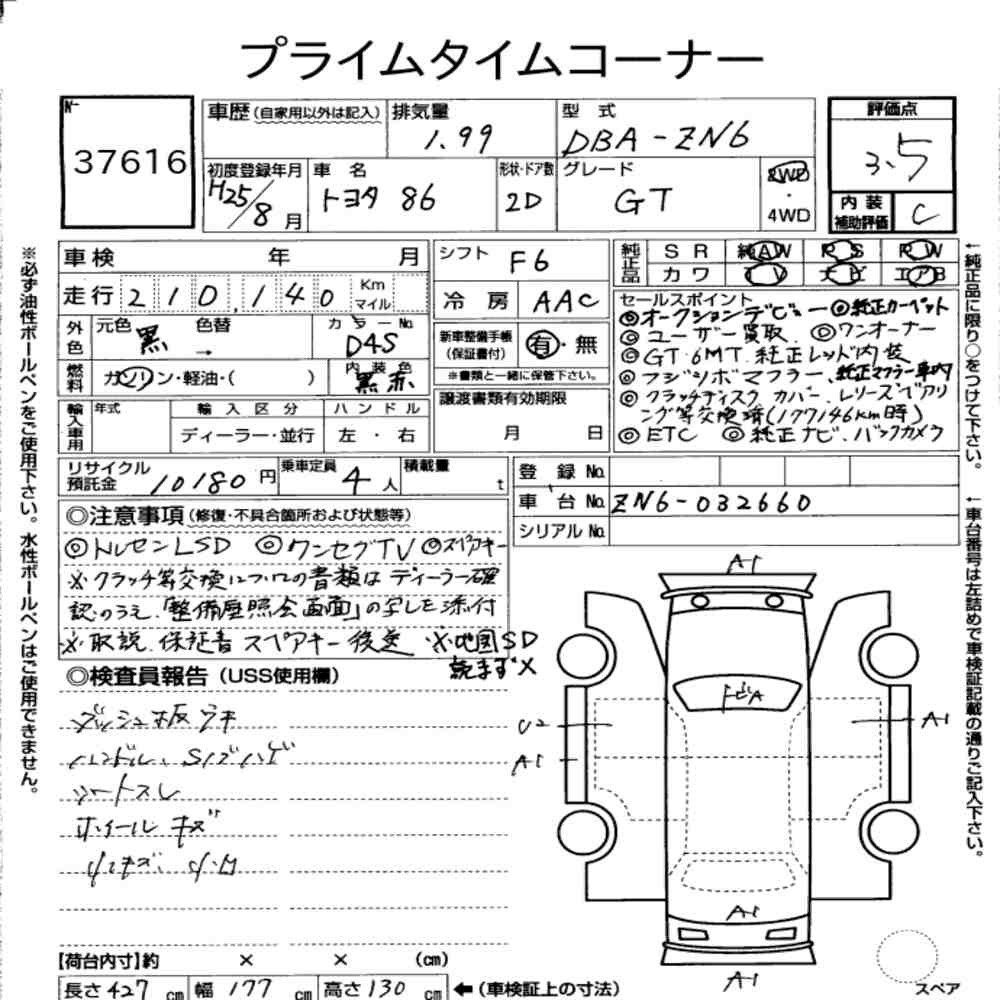 プライムタイムコーナー
No. 37616
車歴(自家用以外は記入)
排気量 1.99
型式 DBA-ZN6
評価点 3.5
初度登録年月 H25/8月
車名 トヨタ 86
形状・ドア数 2D
グレード GT
2WD ・ 4WD
内装補助評価 C
車検 年 月
シフト F6
純正品 SR 純AW RS PW
カワ TV ナビ エアB
走行 210,140 Km マイル
冷房 AAC
外色 元色 黒 色替 → カラーNo. D4S
新車整備手帳(保証書付) 有・無
※書類と一緒に保管下さい。
燃料 ガソリン・軽油・( )
内装色 黒赤
譲渡書類有効期限 月 日
輸入車用 年式 輸入区分 ハンドル
ディーラー・並行 左・右
セールスポイント
◎オークションデビュー ◎純正カーペット
◎ユーザー買取 ◎ワンオーナー
◎GT 6MT 純正レッド内装
◎フジツボマフラー、純正マフラー車内
◎クラッチディスク カバー、レリーズベアリ
ング等交換済(177146km時)
◎ETC ◎純正ナビ、バックカメラ
リサイクル預託金 10180円
乗車定員 4人
積載量 t
登録No.
車台No. ZN6-032660
シリアルNo.
◎注意事項(修復・不具合箇所および状態等)
◎トルセンLSD ◎ワンセグTV ◎スペアキー
※クラッチ等交換についての書類はディーラー確
認のうえ、「整備歴照会画面」の写しを添付
※取説、保証書 スペアキー後送 ※地図SD
読まず×
◎検査員報告(USS使用欄)
ダッシュ板ウキ
ハンドル、S/ズハゲ
シートスレ
ホイールキズ
小キズ、小凹
A1
トビA
U2
A1
A1
A1
A1
スペア
【荷台内寸】約 × × (cm)
長さ 427 cm 幅 177 cm 高さ 130 cm ←(車検証上の寸法)
※必ず油性ボールペンをご使用下さい。水性ボールペンはご使用できません。
←純正品に限り○をつけて下さい。
←車台番号は左詰めで車検証記載の通りご記入下さい。